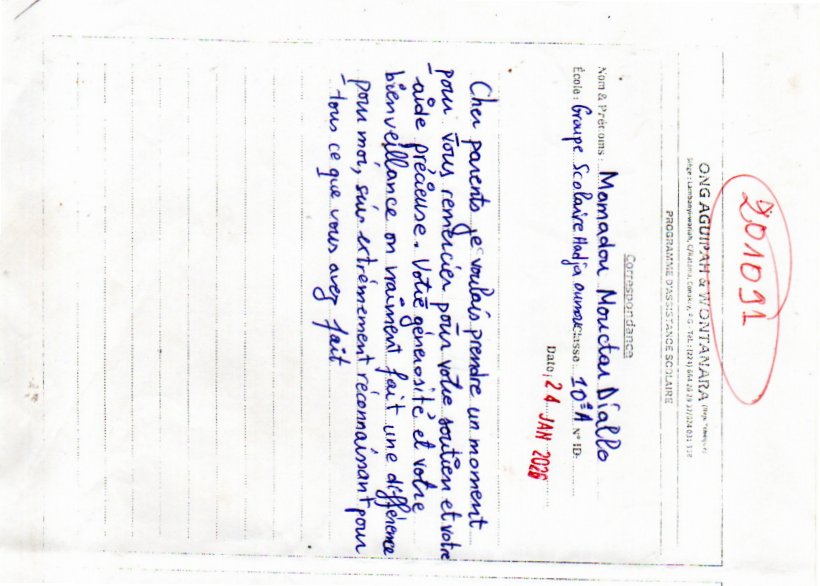 201091
ONG AGUIPAH & WONTANARA
PROGRAMME D'ASSISTANCE SCOLAIRE
Correspondance
Nom & Prénoms: Mamadou Mouctar Diallo
École: Groupe Scolaire Hadja oumou Classe 10èA N° ID:
Date, 24 JAN 2026
Cher parents, je voulais prendre un moment
pour vous remercier pour votre soutien et votre
aide précieuse. Votre génerosité et votre
bienveillance on vraiment fait une différence
pour moi, suis extrêmement reconnaissant pour
tous ce que vous avez fait